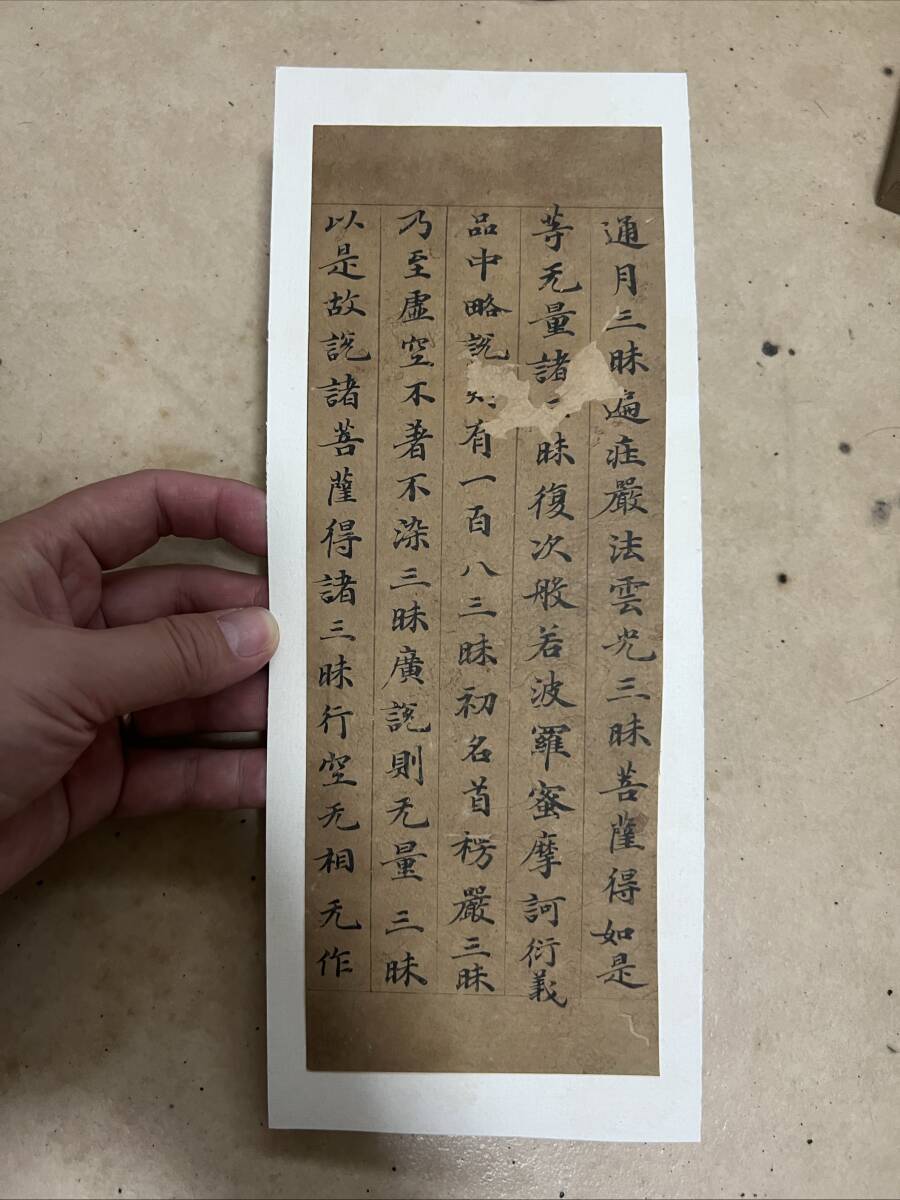 通月三昧遍庄嚴法雲光三昧菩薩得如是
等无量諸昧復次般若波羅蜜摩訶衍義
品中略說則有一百八三昧初名首楞嚴三昧
乃至虛空不著不染三昧廣說則无量三昧
以是故說諸菩薩得諸三昧行空无相无作